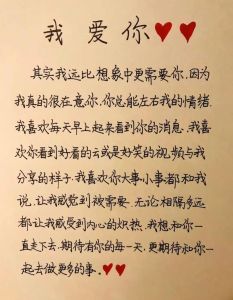 我爱你
其实我远比想象中更需要你,因为
我真的很在意你,你总能左右我的情绪.
我喜欢每天早上起来看到你的消息.我喜
欢你看到好看的云或是好笑的视频与我
分享的样子.我喜欢你大事小事都和我
说,让我感觉到被需要.无论相隔多远
都让我感受到内心的炽热.我想和你一
直走下去.期待有你的每一天.更期待和你一
起去做更多的事.